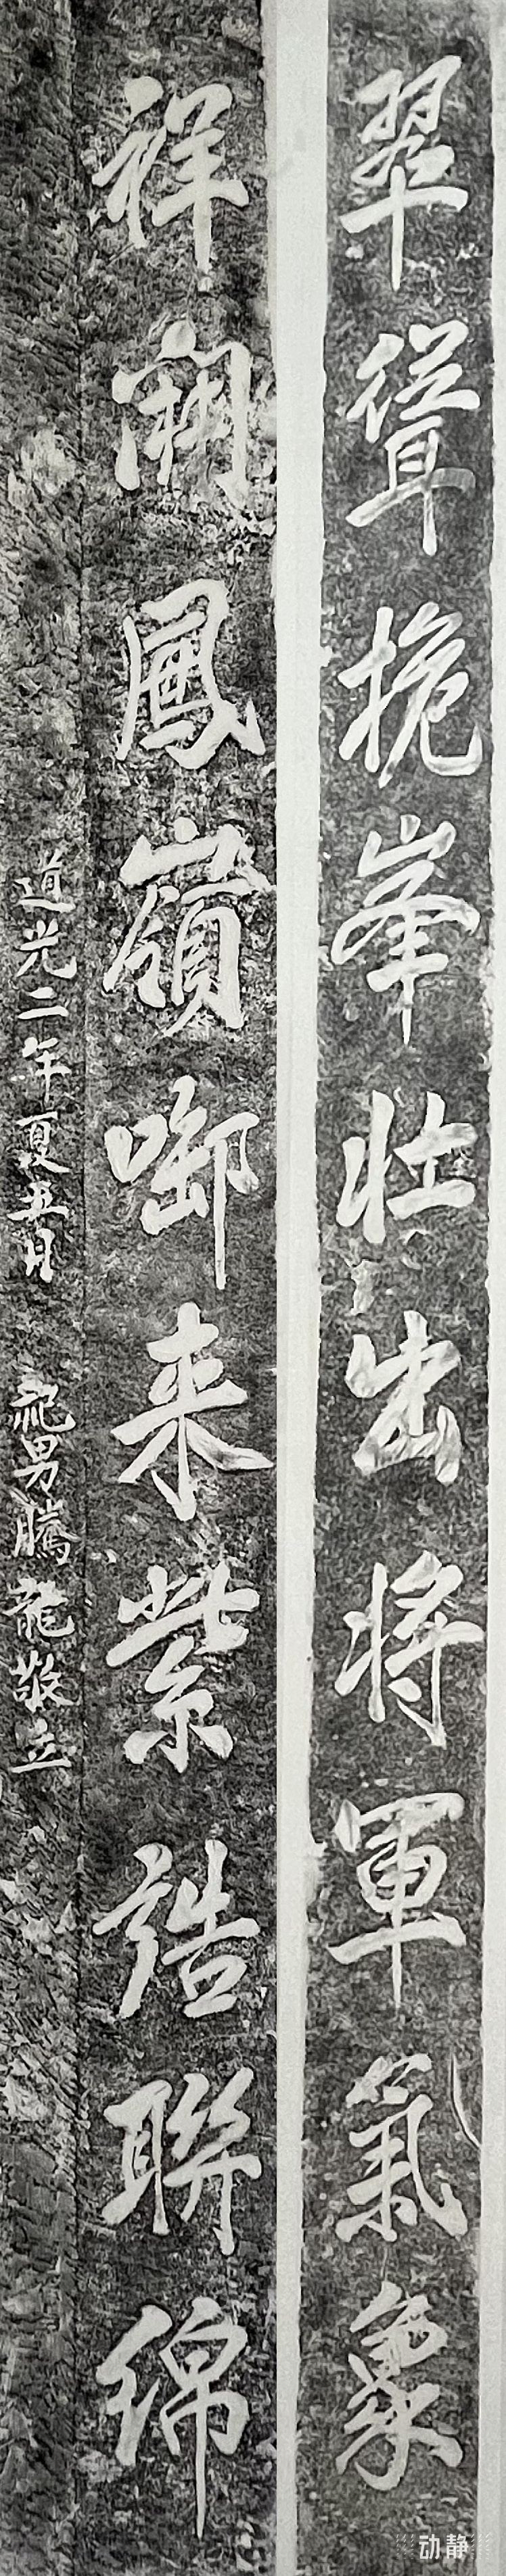 翠聳挽峯壯出将軍氣象
祥開鳳嶺啣来紫誥聯綿
道光二年夏五月 祀男騰龍敬立
动静